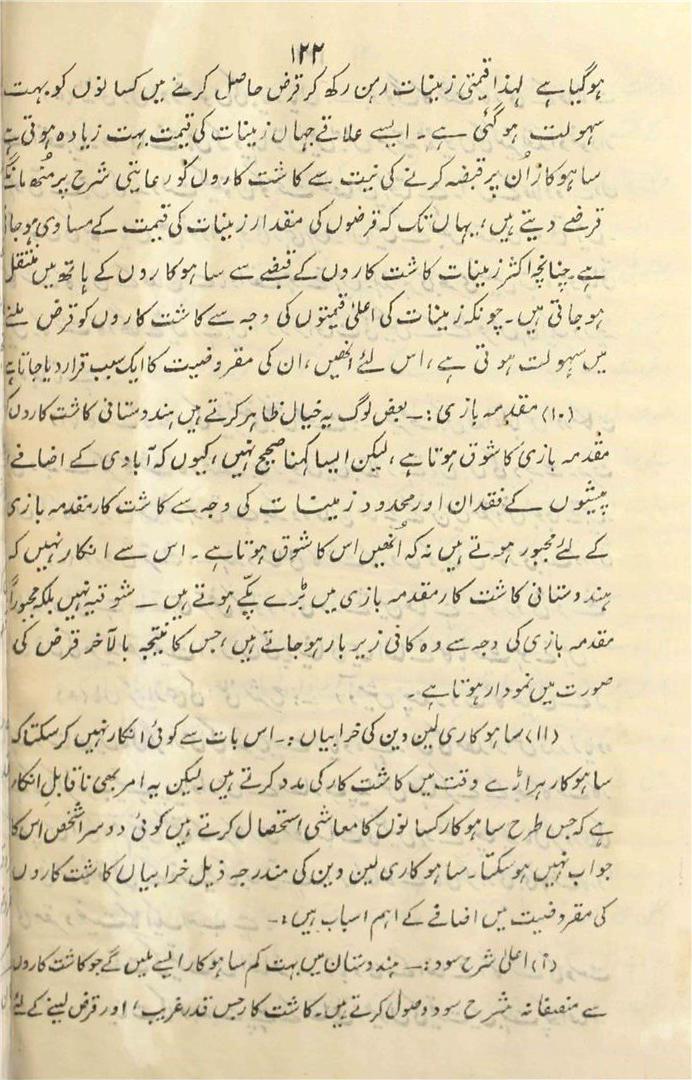 ۱۲۲
ہوگیا ہے لہذا قیمتی زمینات رہن رکھ کر قرض حاصل کرنے میں کسانوں کو بہت
سہولت ہو گئی ہے ۔ ایسے علاقے جہاں زمینات کی قیمت بہت زیادہ ہوتی ہے
ساہوکار اُن پر قبضہ کرنے کی نیت سے کاشت کاروں کو رعایتی شرح پر مُنھ مانگے
قرضے دیتے ہیں، یہاں تک کہ قرضوں کی مقدار زمینات کی قیمت کے مساوی ہوجاتی
ہے چنانچہ اکثر زمینات کاشت کاروں کے قبضے سے ساہوکاروں کے ہاتھ میں منتقل
ہو جاتی ہیں ۔ چونکہ زمینات کی اعلیٰ قیمتوں کی وجہ سے کاشت کاروں کو قرض ملنے
میں سہولت ہوتی ہے، اس لئے انھیں، ان کی مقروضیت کا ایک سبب قرار دیا جاتا ہے
(۱۰) مقدمہ بازی :۔ بعض لوگ یہ خیال ظاہر کرتے ہیں ہندوستانی کاشت کاروں کو
مقدمہ بازی کا شوق ہوتا ہے، لیکن ایسا کہنا صحیح نہیں، کیوں کہ آبادی کے اضافے
پیشوں کے فقدان اور محدود زمینات کی وجہ سے کاشت کار مقدمہ بازی
کے لئے مجبور ہوتے ہیں نہ کہ اُنھیں اس کا شوق ہوتا ہے ۔ اس سے انکار نہیں کہ
ہندوستانی کاشت کار مقدمہ بازی میں بڑے پکے ہوتے ہیں ۔ شوقیہ نہیں بلکہ مجبوراً
مقدمہ بازی کی وجہ سے وہ کافی زیر بار ہو جاتے ہیں، جس کا نتیجہ بالآخر قرض کی
صورت میں نمودار ہوتا ہے ۔
(۱۱) ساہوکاری لین دین کی خرابیاں :۔ اس بات سے کوئی انکار نہیں کر سکتا کہ
ساہوکار ہر اڑے وقت میں کاشت کار کی مدد کرتے ہیں ۔ لیکن یہ امر بھی ناقابلِ انکار
ہے کہ جس طرح ساہوکار کسانوں کا معاشی استحصال کرتے ہیں کوئی دوسرا شخص اس کا
جواب نہیں ہو سکتا ۔ ساہوکاری لین دین کی مندرجہ ذیل خرابیاں کاشت کاروں
کی مقروضیت میں اضافے کے اہم اسباب ہیں :۔
(أ) اعلیٰ شرح سود :۔ ہندوستان میں بہت کم ساہوکار ایسے ملیں گے جو کاشت کاروں
سے منصفانہ شرح سود وصول کرتے ہیں ۔ کاشت کار جس قدر غریب، اور قرض لینے کے لئے